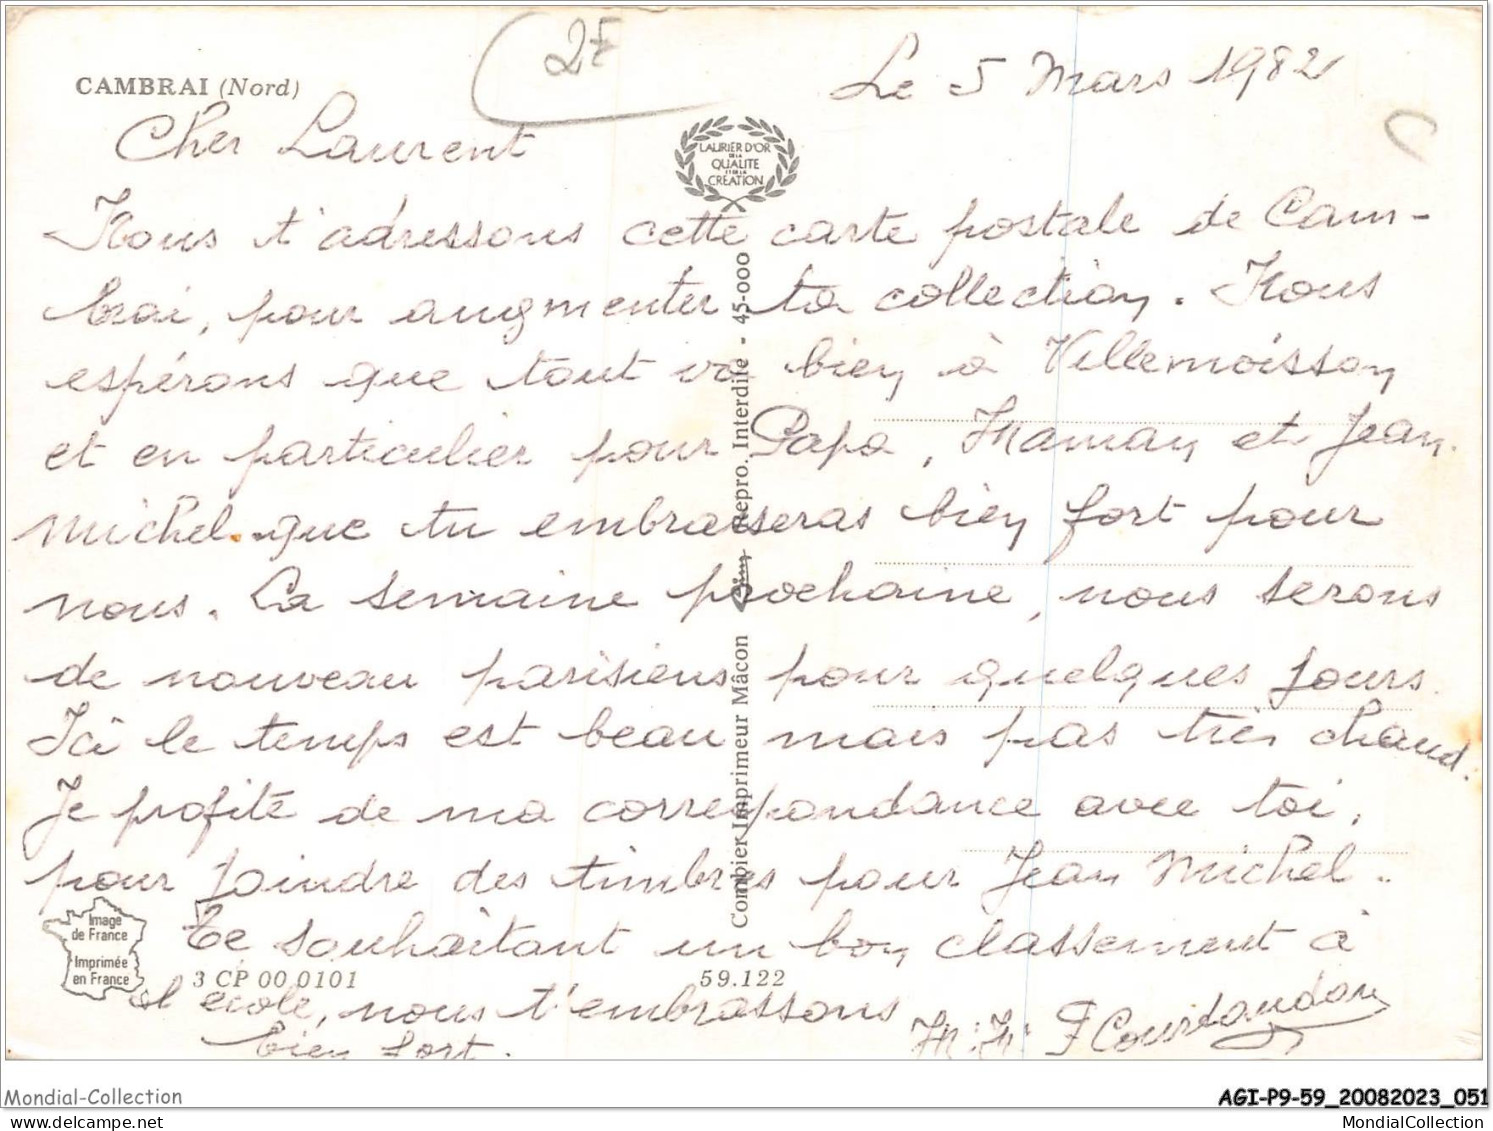 2F
Le 5 Mars 1982
CAMBRAI (Nord)
Cher Laurent
LAURIER D'OR
DE LA
QUALITE
ET DE LA
CREATION
Nous t'adressons cette carte postale de Cam-
brai, pour augmenter ta collection. Nous
espérons que tout va bien à Villemoisson
et en particulier pour Papa, Maman et Jean
Michel que tu embrasseras bien fort pour
nous. La semaine prochaine, nous serons
de nouveau parisiens pour quelques jours.
Ici le temps est beau mais pas très chaud.
Je profite de ma correspondance avec toi,
pour joindre des timbres pour Jean Michel.
Te souhaitant un bon classement à
l'école, nous t'embrassons
bien fort.
Combier Imprimeur Mâcon
Repro. Interdite - 45-000
Image
de France
Imprimée
en France
3 CP 00 0101
59.122
Mondial-Collection
AGI-P9-59_20082023_051
www.delcampe.net
MondialCollection